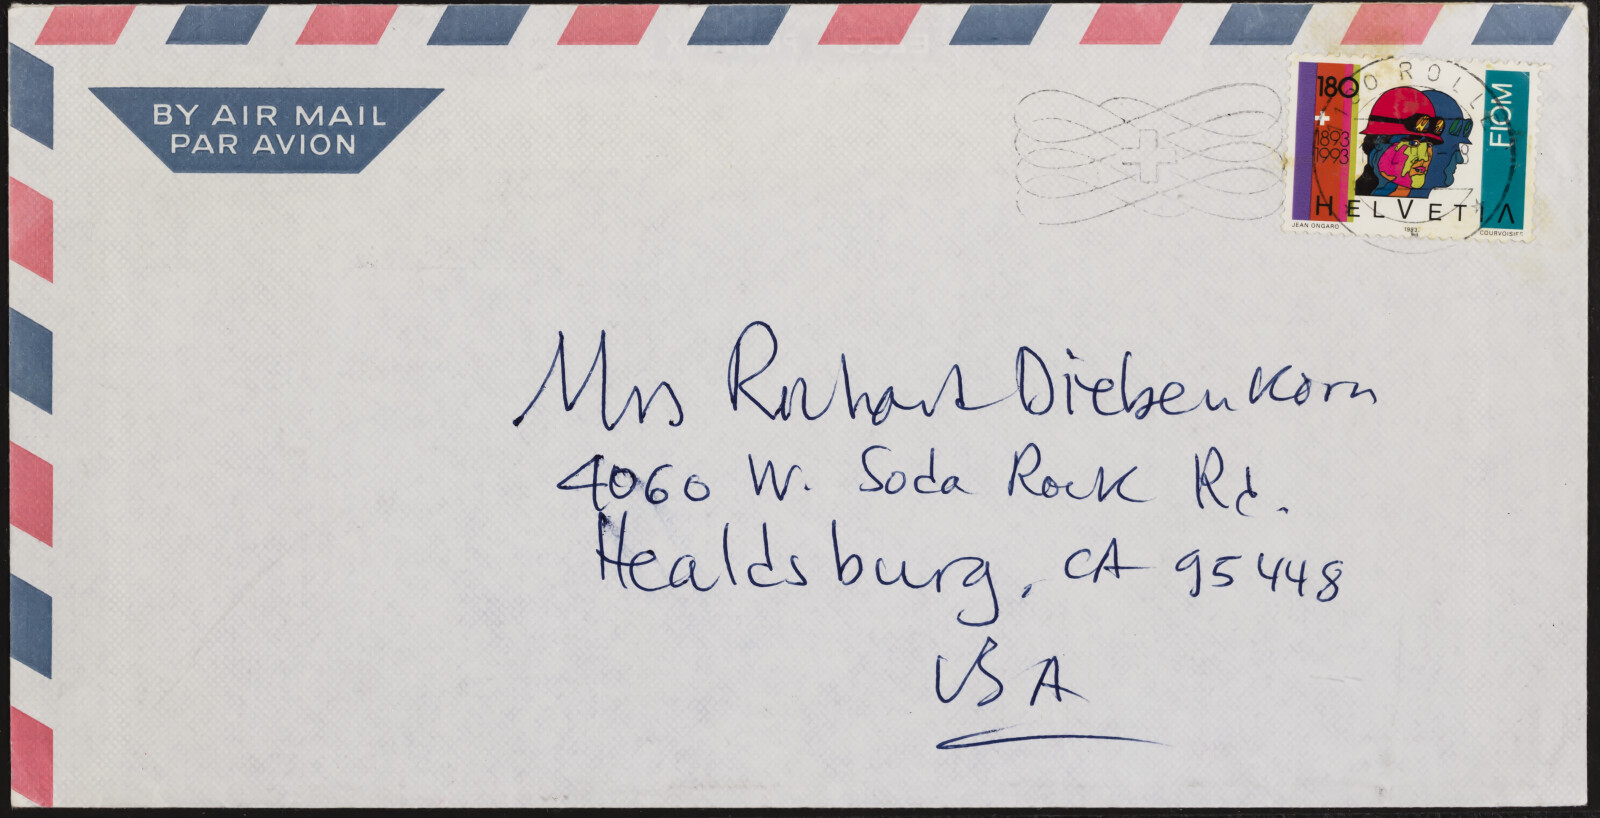 BY AIR MAIL
PAR AVION
180
1893
1993
FIOM
HELVETIA
JEAN ONGARO
1993
COURVOISIER
Mrs Richard Diebenkorn
4060 W. Soda Rock Rd.
Healdsburg, CA 95448
USA